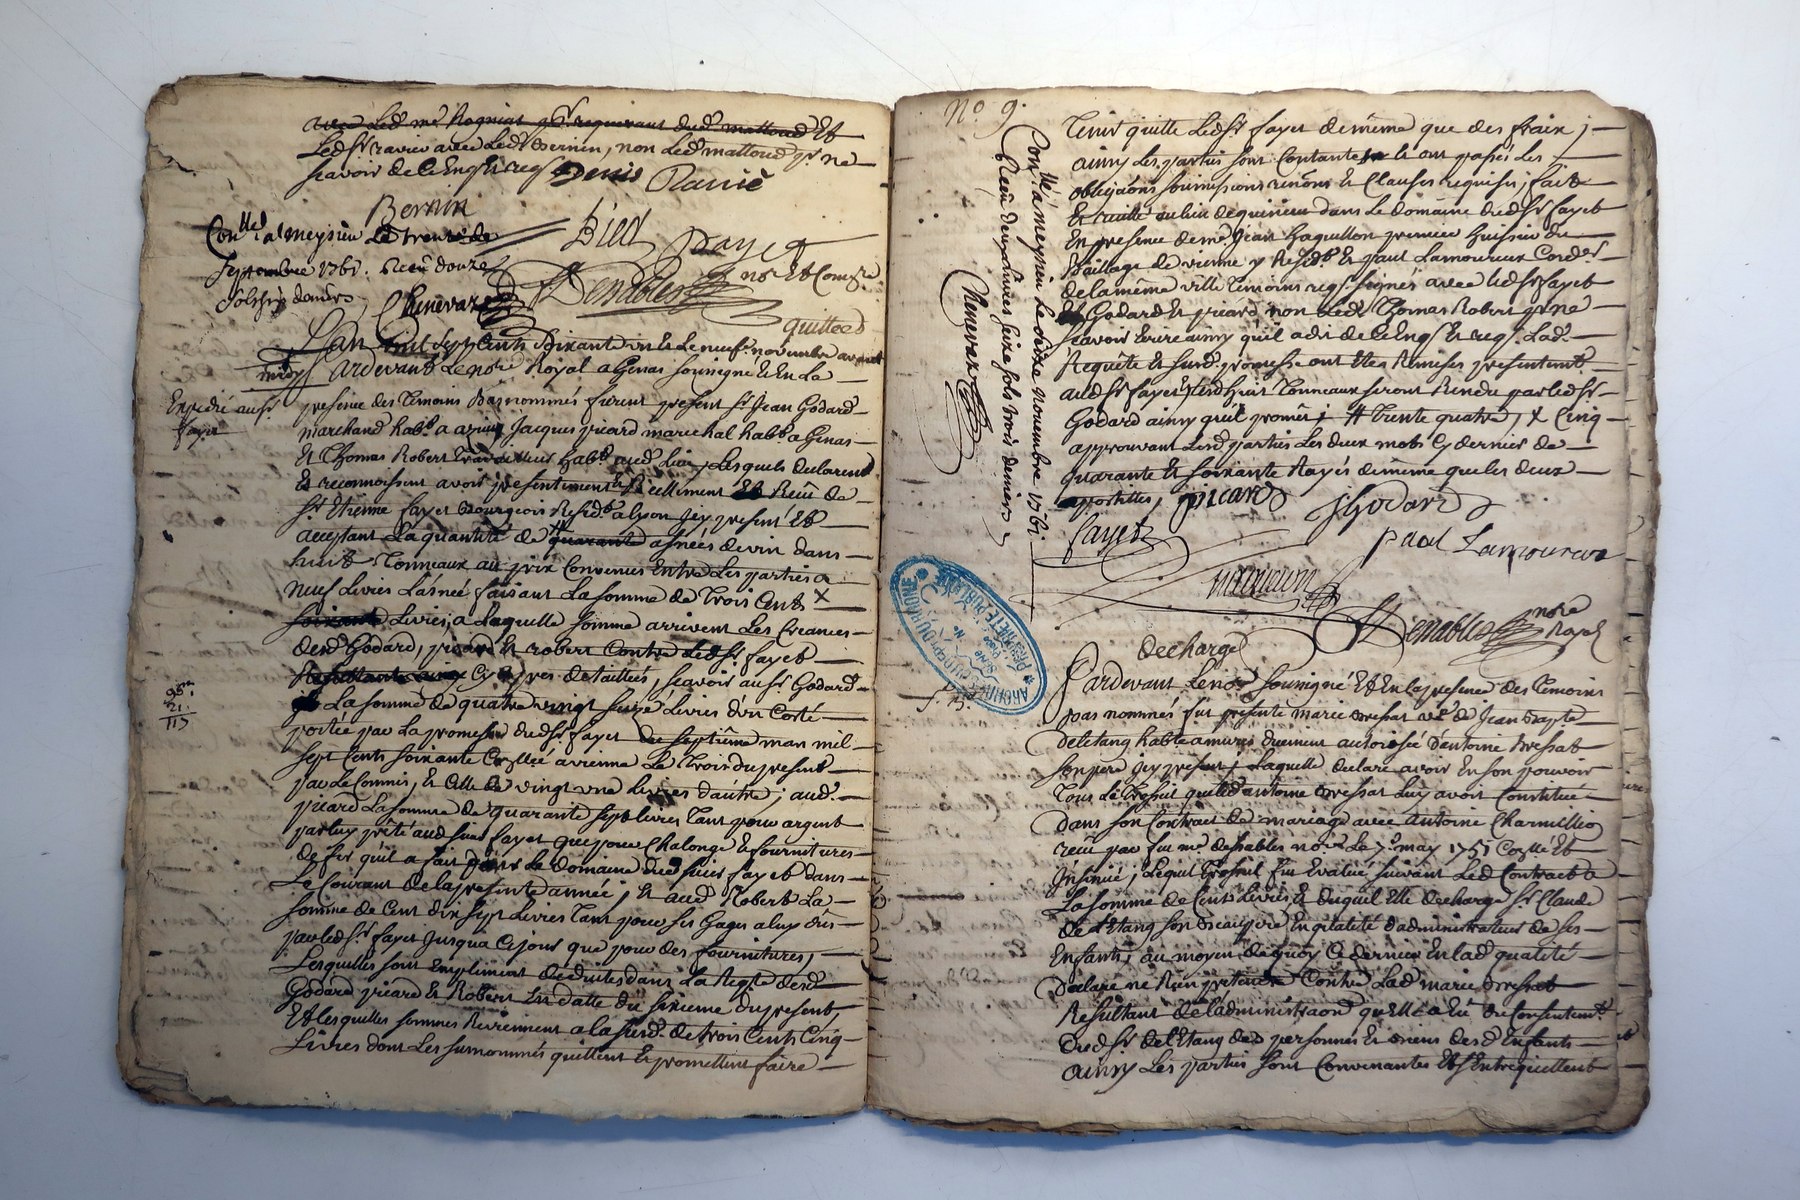 avec led. me Rogniat pr. requerant dud. mattoud Et
Led. Sr ravier avec Led. Bernin, non Led. mattoud pr. ne
scavoir de ce Enqs Et reqs Denis Ravié
Bernin
Bied
payet
Conllé a Meyzieu Le trente de
Septembre 1761. Receu douze
Chenevaz
Denables nore Et Comsre
quittce
L'an mil Sept Cents Soixante un Et Le neuf.e novembre avant
midy Pardevant Le nore Royal a Genas soussigné Et En La
Expedié au Sr.
fayet
presence des Temoins Bas nommés furent presents Sr. Jean Godard
marchand habt. a azieu, Jacques picard marechal habt. a Genas
Et Thomas Robert Travailleur habt. aud. lieu, Lesquels declarent
Et reconnoissent avoir presentiment Et Reellement Receu de
Sr. Etienne fayet Bourgeois Residt. a Lyon icy present Et
acceptant La quantité de quarante asnées de vin dans
huit Tonneaux au prix Convenus Entre Les parties a
neuf Livres L'asnée faisant La somme de Trois Cents X
soixante Livres, a Laquelle somme arrivent Les Creances
desd. Godard, picard Et robert Contre Led. Sr. fayet
Cy apres detaillées, scavoir aud. Sr. Godard
La somme de quatre vingt seize Livres d'un Costé
portée par La promesse dud. Sr. fayet du septième mars mil
sept Cents soixante Conllée a vienne Le Trois du present
par Le Commis, Et Celle de vingt une Livres d'autre; aud.
95
21.
117
picard La somme de quarante sept livres Tant pour argent
par luy prêté aud. Sieur fayet que pour
de fer qu'il a fait pour Le Domaine dud. sieur fayet dans
Le Courant de la presente année; Et aud. Robert La
somme de Cent dix sept Livres Tant pour ses Gages a luy dus
par led. Sr. fayet Jusqua Ce jour que pour des fournitures,
Lesquelles sont Emplement deduites dans La Reqte desd.
Godard picard Et Robert En datte du sixieme du present,
Et lesquelles sommes Reviennent a la susd. de trois Cents Cinq
Livres dont Les susnommés quittent Et promettent faire
No. 9.
Tenir quitte Led. Sr. fayet de même que des fraix;
ainsy Les parties sont Contantes Et ont passés Les
obligaõns soumissions renõns Et Clauses requises; fait
Et Recitté au lieu de quirieux dans Le domaine dud. Sr. fayet
En presence de me. Jean haquillon premier huissier du
Bailliage de vienne y Residt. Et paul Lamoureux Cordr.
de la même ville Temoins reqs. signés avec led. Sr. fayet
Et Godard Et picard non Led. Thomas Robert pr. ne
scavoir Ecrire ainsy qu'il a dit de ce Enqs Et reqs. Lad.
Requête Et susd. promesse ont Etée Remises presentemt.
aud. Sr. fayet Et lesd. huit Tonneaux seront Rendu par led. Sr.
Godard ainsy qu'il promêt, # Trente quatre, X Cinq
approuvant Lesd. parties Les deux mots Cy dernier de
quarante Et soixante Rayés de même que les deux
apostilles, picard
J Godard
fayet
paul Lamoureux
Denables nore Royal
Conllé a meyzieu Le douze novembre 1761
Receu deux livres seize sols trois deniers
Chenevaz
ARCHIVES DU DEPT DU RHONE
PROPRIETE PUBLIQUE
Série
Pièce
No
decharge
Pardevant Le nore soussigné Et En la presence des Temoins
bas nommés fut presente marie Bressat ve. de Jean Bapte.
deletang hable. a mures duement autorisée d'antoine Bressat
son pere icy present, Laquelle declare avoir En son pouvoir
Tous Le Trossel que led. antoine Bressat Luy avoit Constitué
dans son Contract de mariage avec antoine Charmillo
receu par feu me. denables nore Le 7e. may 1751 Conllé Et
Jnsinué; Lequel Trossel fut Evalué suivant Led. Contract a
La somme de Cent Livres, Et duquel Elle decharge Sr. Claude
de L'Etang son Beaupere En qualité d'administrateur de ses
Enfants, au moyen de quoy Ce dernier En lad. qualité
Declare ne Rien pretendre Contre Lad. marie Bressat
Resultant de L'administraõn qu'elle a Eü du Consentemt.
dud. Sr. de L'Etang des personnes Et Biens desd. Enfants
ainsy Les parties sont Convenantes Et s'Entrequittent